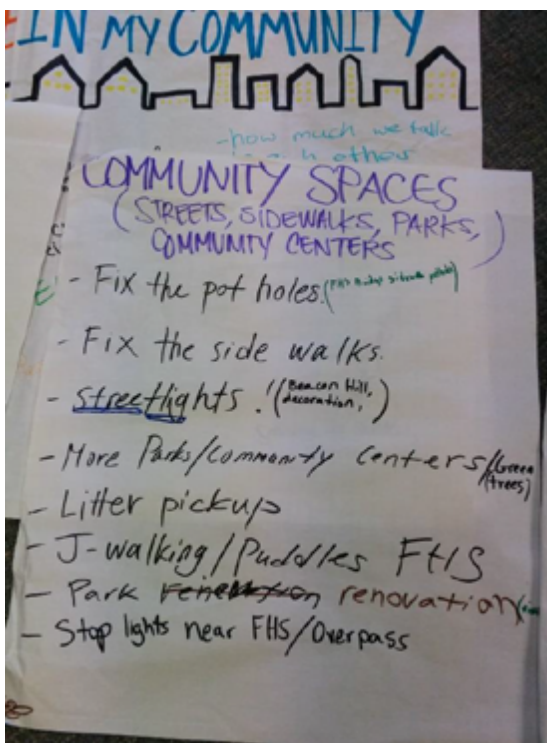 IN MY COMMUNITY
-how much we talk
other
COMMUNITY SPACES
(STREETS, SIDEWALKS, PARKS,
COMMUNITY CENTERS)
- Fix the pot holes. (FHS
- Fix the side walks.
- Streetlights! (Beacon Hill,
decoration,)
- More Parks/Community Centers/Green
(trees)
- Litter pickup
- J-walking/Puddles FHS
- Park renovation
- Stop lights near FHS/Overpass